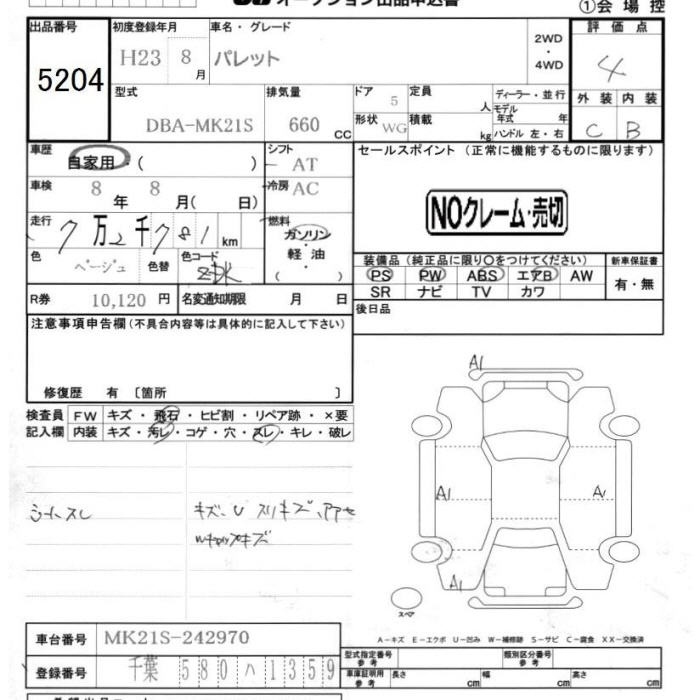 オークション出品申込書
①会場控
出品番号 初度登録年月 車名・グレード 評価点
5204 H23 8月 パレット 2WD・4WD 4
型式 排気量 ドア 定員 ディーラー・並行 外装 内装
DBA-MK21S 660 CC 5 人 モデル年式 年 C B
形状 WG 積載 kg ハンドル 左・右
車歴 自家用・( ) シフト AT セールスポイント (正常に機能するものに限ります)
車検 8年 8月( 日) 冷房 AC
NOクレーム・売切
走行 7万2千781km 燃料 ガソリン・軽油・( )
色 ベージュ 色替 色コード
装備品(純正品に限り○をつけてください) 新車保証書
PS PW ABS エアB AW 有・無
SR ナビ TV カワ
R券 10,120円 名変通知期限 月 日 後日品
注意事項申告欄(不具合内容等は具体的に記入して下さい)
修復歴 有 〔箇所 〕
検査員 FW キズ・飛石・ヒビ割・リペア跡・×要
記入欄 内装 キズ・汚レ・コゲ・穴・スレ・キレ・破レ
A1
A1 A1
シートスレ キズ・U スリキズ
A1
スペア
A-キズ E-エクボ U-凹み W-補修跡 S-サビ C-腐食 XX-交換済
車台番号 MK21S-242970
登録番号 千葉 580 ハ 1359
型式指定番号 参考 類別区分番号 参考
車庫証明用 参考 長さ cm 幅 cm 高さ cm